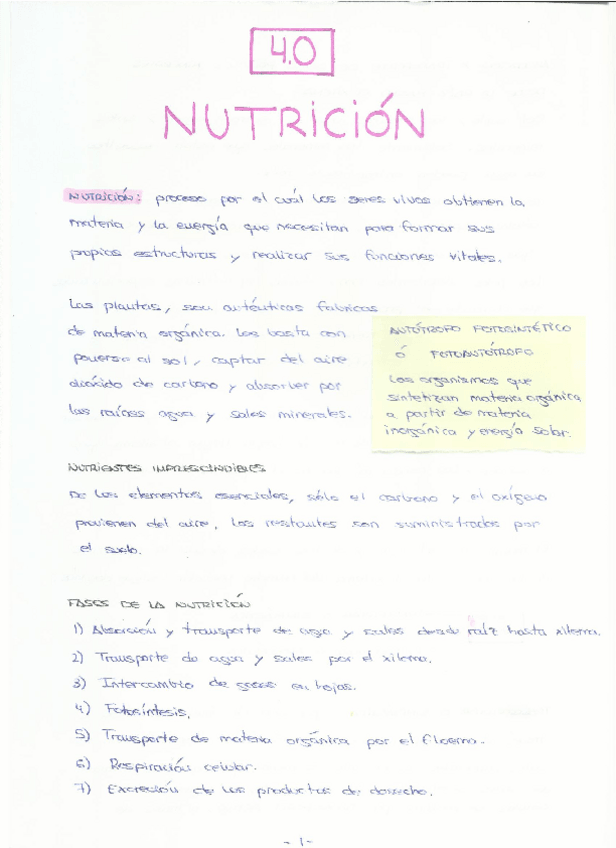 4.0
NUTRICIÓN
NUTRICIÓN: proceso por el cuál los seres vivos obtienen la
materia y la energía que necesitan para formar sus
propias estructuras y realizar sus funciones vitales.
Las plantas, son auténticas fabricas
de materia orgánica. Les basta con
ponerse al sol, captar del aire
dióxido de carbono y absorber por
las raíces agua y sales minerales.
AUTÓTROFO FOTOSINTÉTICO
ó FOTOAUTÓTROFO
Los organismos que
sintetizan materia orgánica
a partir de materia
inorgánica y energía solar.
NUTRIENTES IMPRESCINDIBLES
De los elementos esenciales, sólo el carbono y el oxígeno
provienen del aire, los restantes son suministrados por
el suelo.
FASES DE LA NUTRICIÓN
1) Absorción y transporte de agua y sales desde raíz hasta xilema.
2) Transporte de agua y sales por el xilema.
3) Intercambio de gases en hojas.
4) Fotosíntesis.
5) Transporte de materia orgánica por el floema.
6) Respiración celular.
7) Excreción de los productos de desecho.
- 1 -